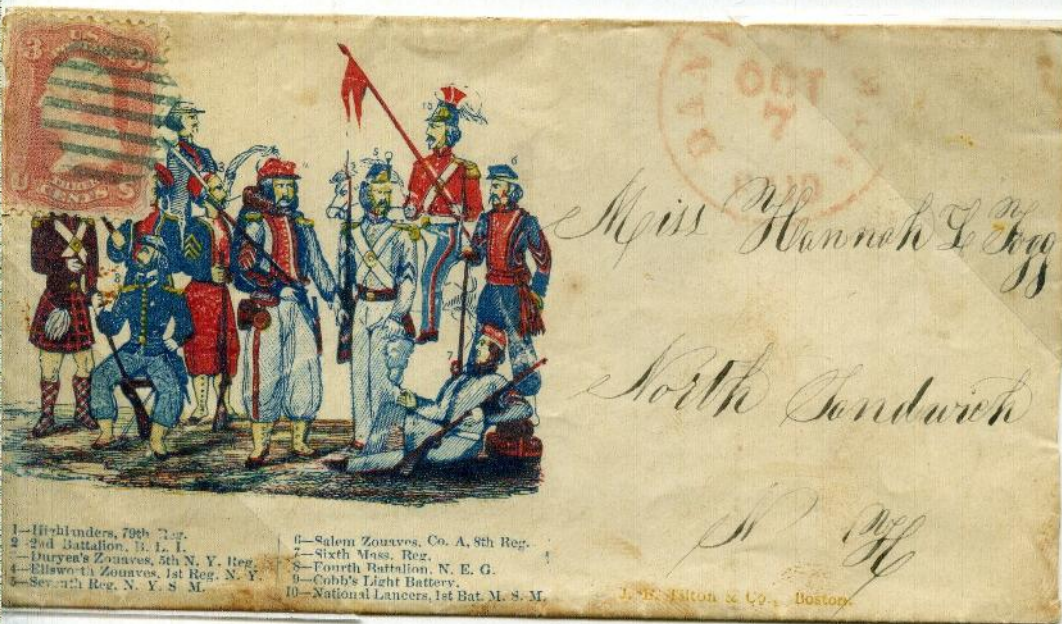 3 U.S. 3
U THREE CENTS S
OCT
7
PAID
Miss Hannah L Fogg
North Sandwich
N H
1—Highlanders, 79th Reg.
2—2nd Battalion, B. L. I.
—Duryea's Zouaves, 5th N. Y. Reg.
4—Ellsworth Zouaves, 1st Reg. N. Y.
5—Seventh Reg. N. Y. S M.
6—Salem Zouaves, Co. A, 8th Reg.
7—Sixth Mass. Reg.
8—Fourth Battalion, N. E. G.
9—Cobb's Light Battery.
10—National Lancers, 1st Bat. M. S. M.
J. E. Tilton & Co., Boston.